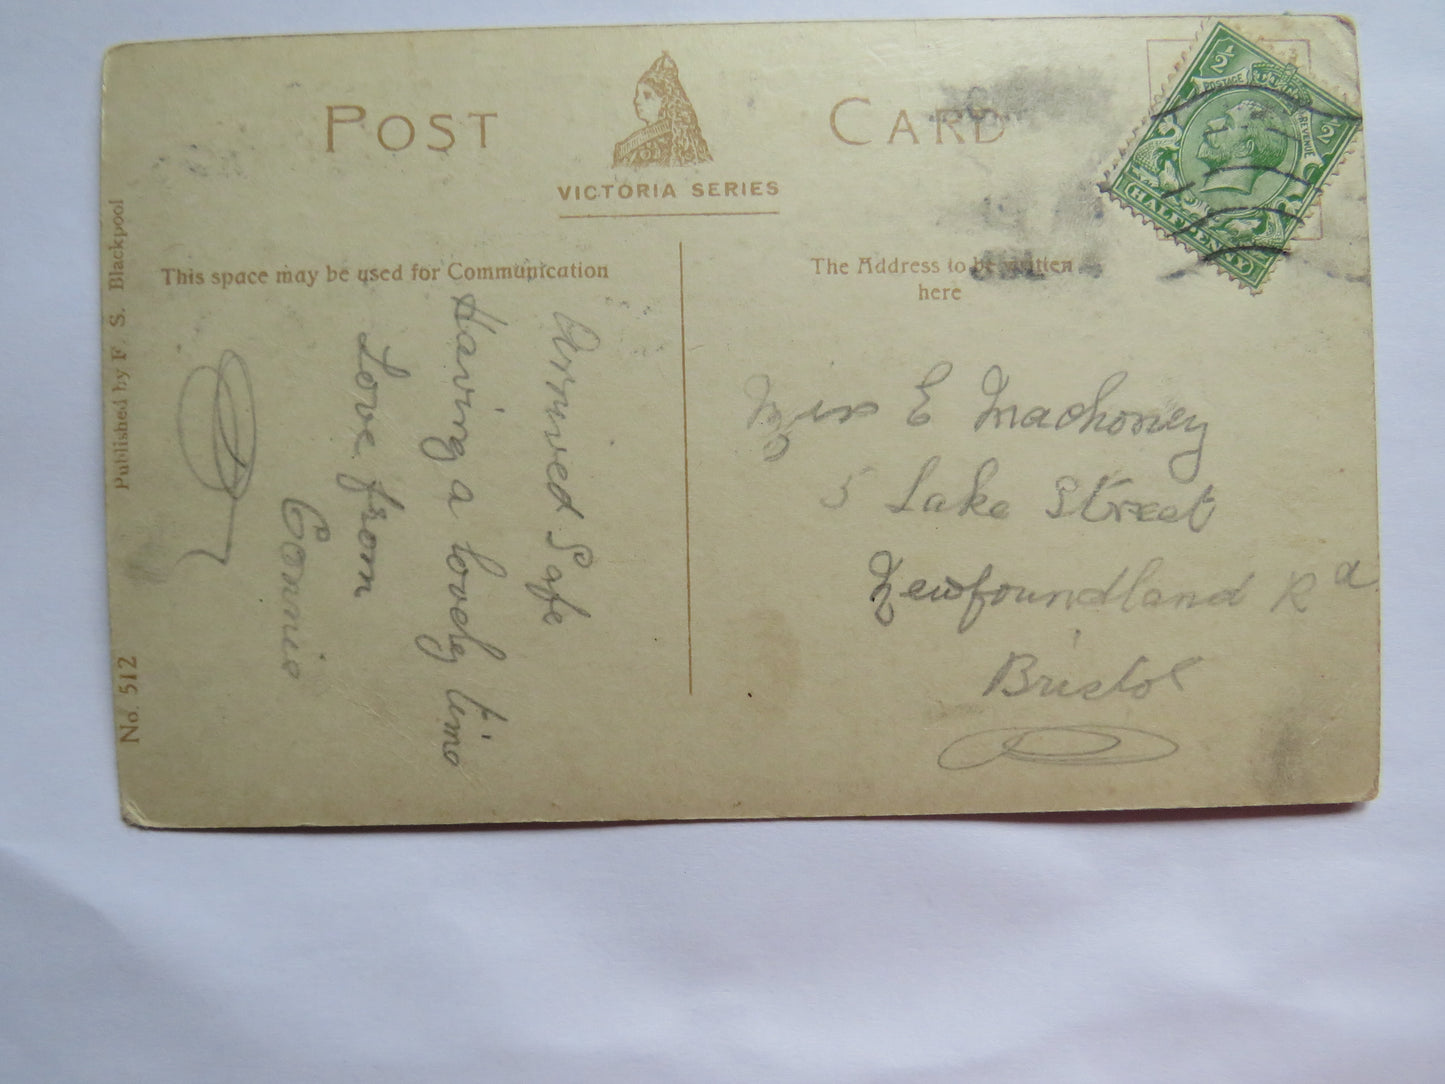 POST CARD
VICTORIA SERIES
This space may be used for Communication
The Address to be written
here
Arrived Safe
Having a lovely time
Love from
Connie
Miss E Machoney
5 Lake Street
Newfoundland Rd
Bristol
Published by F. S. Blackpool
No. 512
1/2
POSTAGE
REVENUE
1/2
HALFPENNY